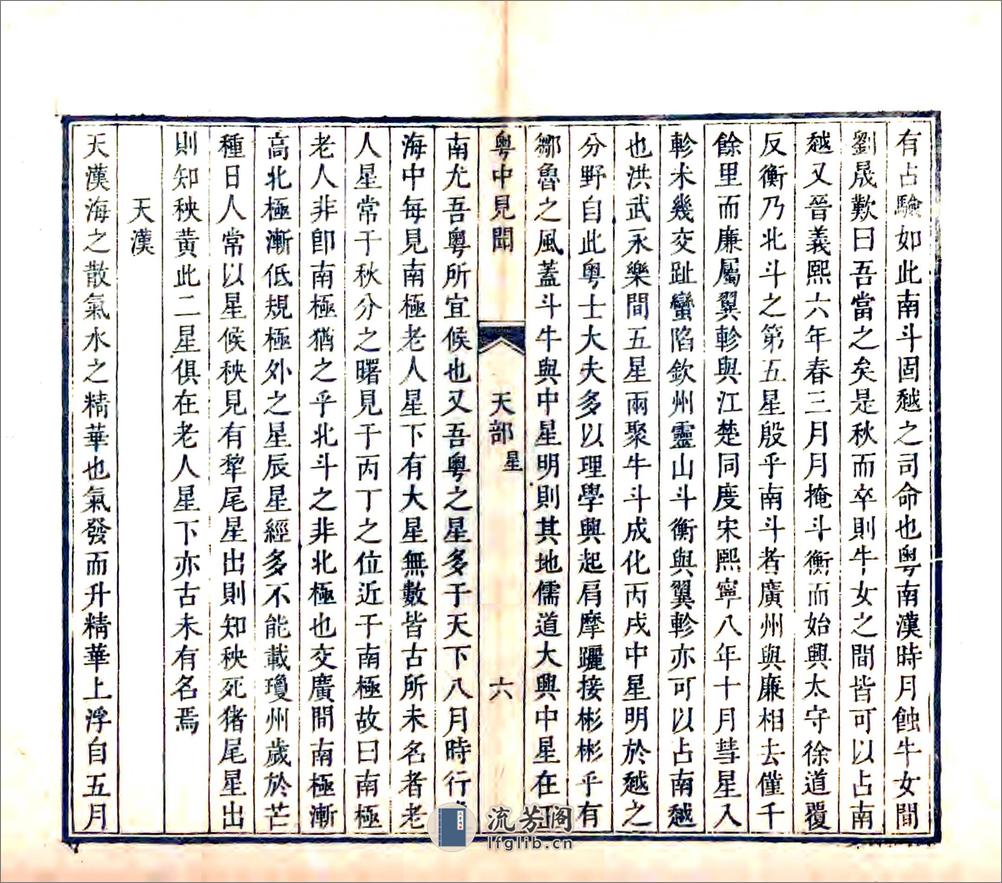 有占驗如此南斗固越之司命也粤南漢時月蝕牛女間
劉晟歎曰吾當之矣是秋而卒則牛女之間皆可以占南
越又晉義熙六年春三月月掩斗衡而始興太守徐道覆
反衡乃北斗之第五星殷乎南斗者廣州與廉相去僅千
餘里而廉屬翼軫與江楚同度宋熙寧八年十月彗星入
軫未幾交趾蠻陷欽州靈山斗衡與翼軫亦可以占南越
也洪武永樂間五星兩聚牛斗成化丙戌中星明於越之
分野自此粤士大夫多以理學興起肩摩躧接彬彬乎有
鄒魯之風蓋斗牛與中星明則其地儒道大興中星在
粤中見聞
天部 星
六
南尤吾粤所宜候也又吾粤之星多于天下八月時行
海中每見南極老人星下有大星無數皆古所未名者老
人星常于秋分之曙見于丙丁之位近于南極故曰南極
老人非卽南極猶之乎北斗之非北極也交廣間南極漸
高北極漸低規極外之星辰星經多不能載瓊州歲於芒
種日人常以星候秧見有犂尾星出則知秧死猪尾星出
則知秧黃此二星俱在老人星下亦古未有名焉
天漢
天漢海之散氣水之精華也氣發而升精華上浮自五月
流芳阁
lfglib.cn